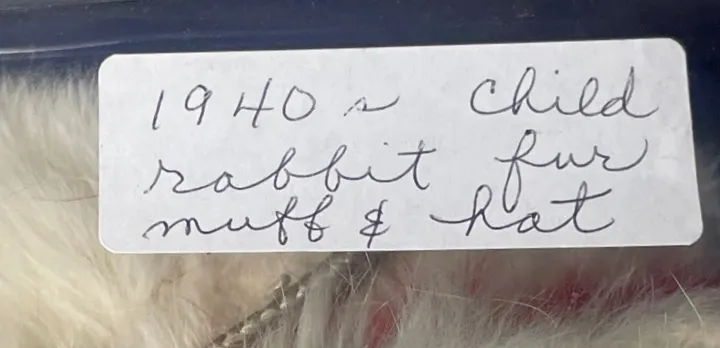 1940s child
rabbit fur
muff & hat